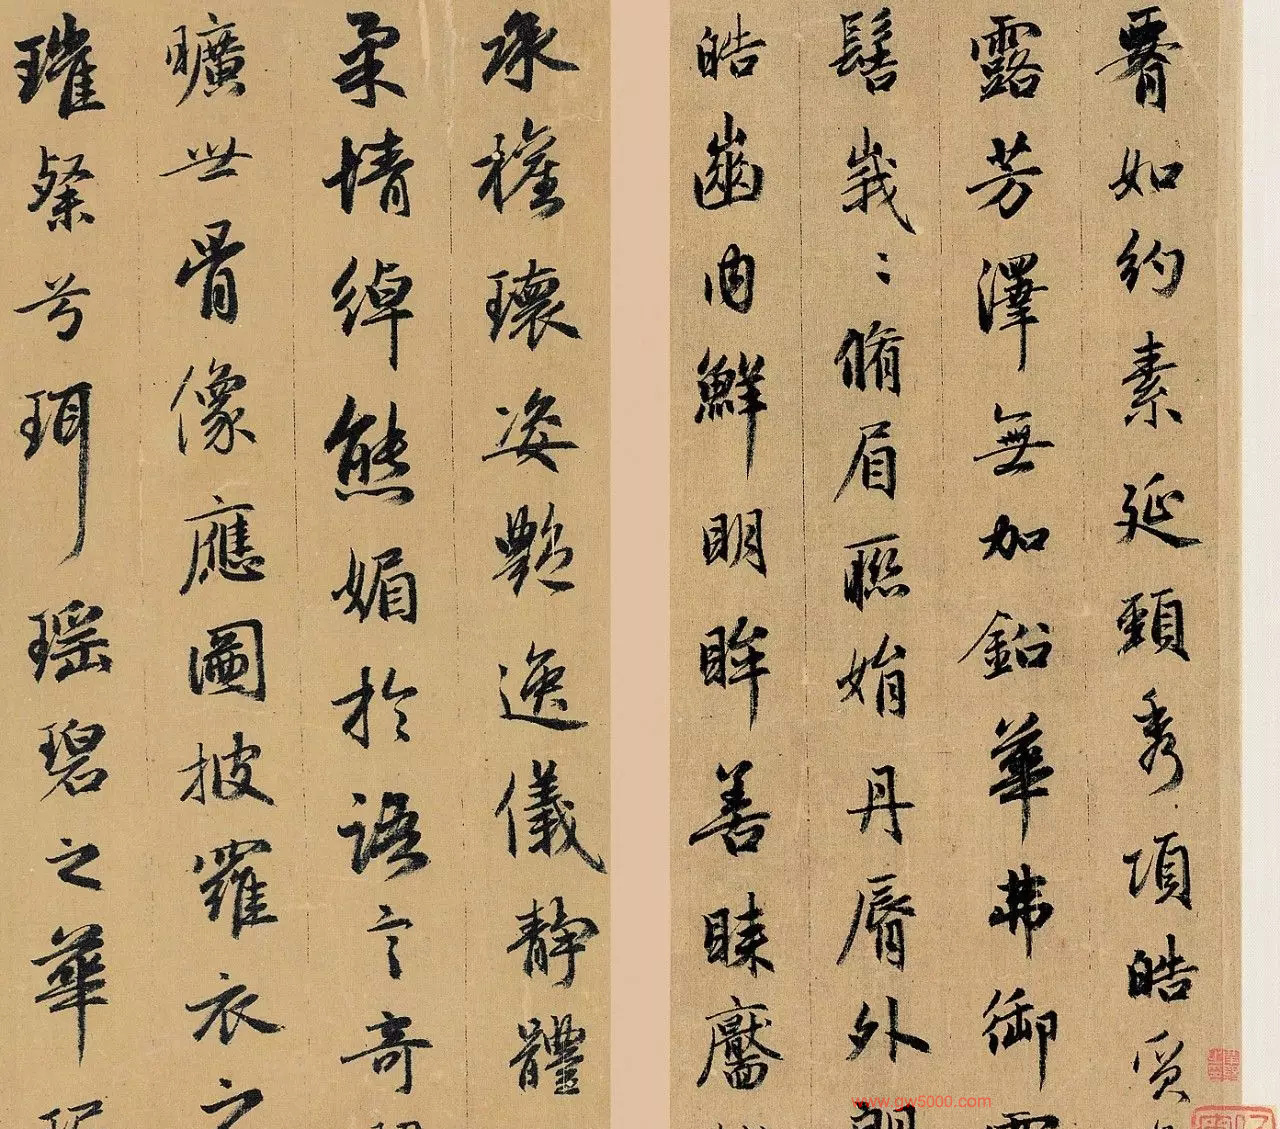 腰如約素延頸秀項皓質
露芳澤無加鉛華弗御
髻峩〻脩眉聯娟丹脣外朗
皓齒內鮮明眸善睞靨
承權瓌姿艷逸儀靜體
柔情綽態媚於語言奇
曠世骨像應圖披羅衣之
璀粲兮珥瑤碧之華
www.gw5000.com